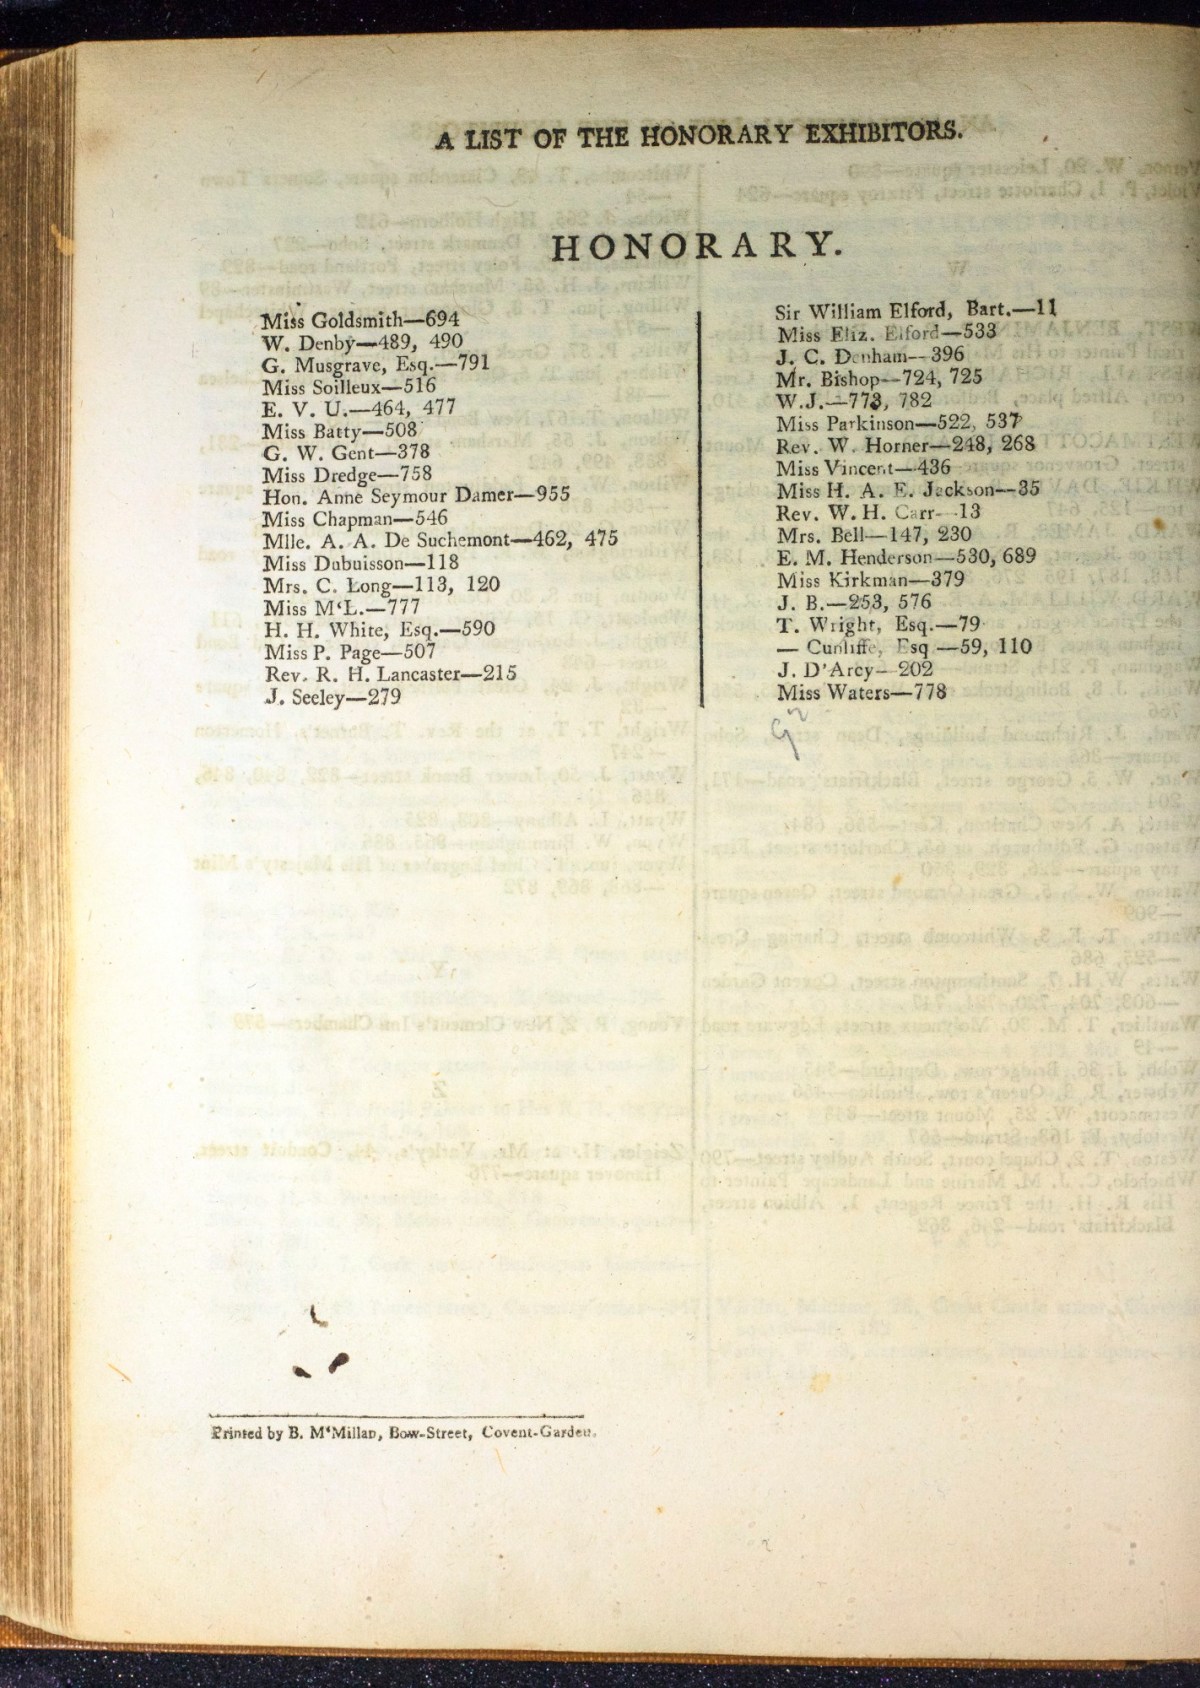 A LIST OF THE HONORARY EXHIBITORS.
HONORARY.
Miss Goldsmith—694
W. Denby—489, 490
G. Musgrave, Esq.—791
Miss Soilleux—516
E. V. U.—464, 477
Miss Batty—508
G. W. Gent—378
Miss Dredge—758
Hon. Anne Seymour Damer—955
Miss Chapman—546
Mlle. A. A. De Suchemont—462, 475
Miss Dubuisson—118
Mrs. C. Long—113, 120
Miss M‘L.—777
H. H. White, Esq.—590
Miss P. Page—507
Rev. R. H. Lancaster—215
J. Seeley—279
Sir William Elford, Bart.—11
Miss Eliz. Elford—533
J. C. Denham—396
Mr. Bishop—724, 725
W.J.—773, 782
Miss Parkinson—522, 537
Rev. W. Horner—248, 268
Miss Vincent—436
Miss H. A. E. Jackson—35
Rev. W. H. Carr—13
Mrs. Bell—147, 230
E. M. Henderson—530, 689
Miss Kirkman—379
J. B.—253, 576
T. Wright, Esq.—79
— Cunliffe, Esq—59, 110
J. D'Arcy—202
Miss Waters—778
Printed by B. M‘Millan, Bow-Street, Covent-Garden.